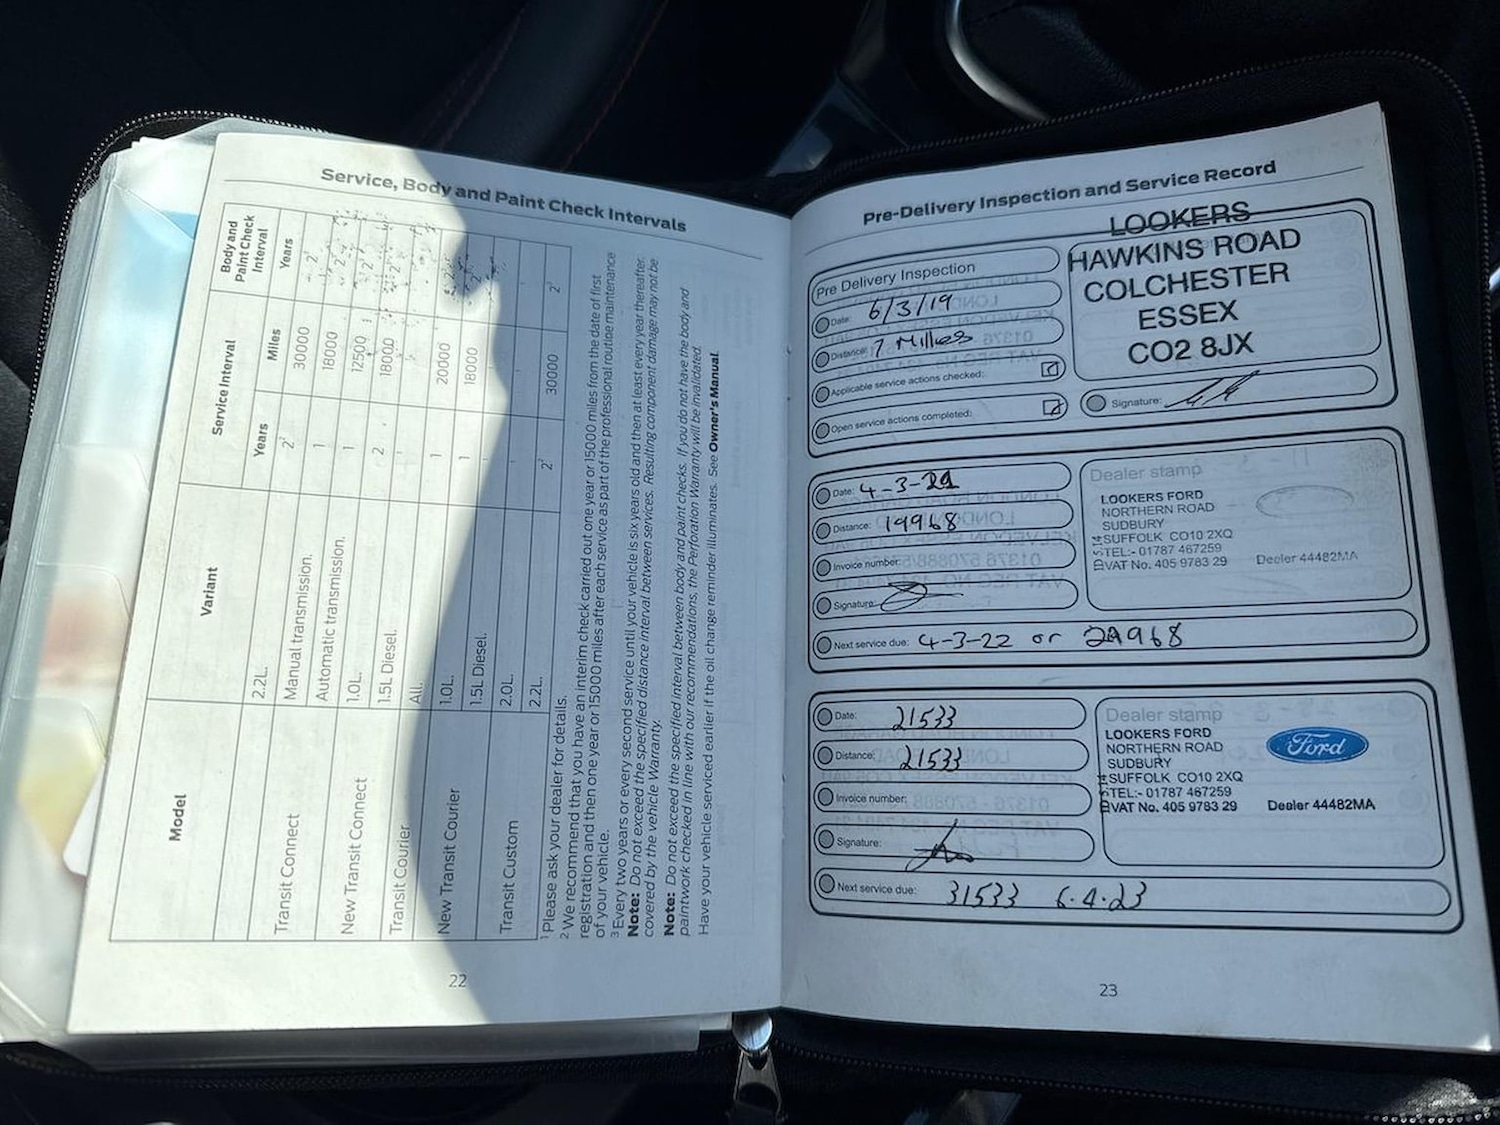 Service, Body and Paint Check Intervals
Model
Variant
Service Interval
Body and Paint Check Interval
Years
Miles
Years
2.2L.
2²
30000
2²
Transit Connect
Manual transmission.
1
18000
2²
Automatic transmission.
1
12500
2²
New Transit Connect
1.0L.
2
18000
2²
1.5L Diesel.
Transit Courier
All.
1
20000
New Transit Courier
1.0L.
1
18000
1.5L Diesel.
Transit Custom
2.0L.
2.2L.
2²
30000
2²
¹ Please ask your dealer for details.
² We recommend that you have an interim check carried out one year or 15000 miles from the date of first
registration and then one year or 15000 miles after each service as part of the professional routine maintenance
of your vehicle.
³ Every two years or every second service until your vehicle is six years old and then at least every year thereafter.
Note: Do not exceed the specified distance interval between services. Resulting component damage may not be
covered by the vehicle Warranty.
Note: Do not exceed the specified interval between body and paint checks. If you do not have the body and
paintwork checked in line with our recommendations, the Perforation Warranty will be invalidated.
Have your vehicle serviced earlier if the oil change reminder illuminates. See Owner's Manual.
22
Pre-Delivery Inspection and Service Record
Pre Delivery Inspection
Date: 6/3/19
Distance: 7 Milles
Applicable service actions checked:
Open service actions completed:
LOOKERS
HAWKINS ROAD
COLCHESTER
ESSEX
CO2 8JX
Signature:
Date: 4-3-21
Distance: 19968
Invoice number:
Signature:
Dealer stamp
LOOKERS FORD
NORTHERN ROAD
SUDBURY
SUFFOLK CO10 2XQ
TEL:- 01787 467259
VAT No. 405 9783 29
Dealer 44482MA
Next service due: 4-3-22 or 29968
Date: 21533
Distance: 21533
Invoice number:
Signature:
Dealer stamp
LOOKERS FORD
NORTHERN ROAD
SUDBURY
SUFFOLK CO10 2XQ
TEL:- 01787 467259
VAT No. 405 9783 29
Ford
Dealer 44482MA
Next service due: 31533 6.4.23
23